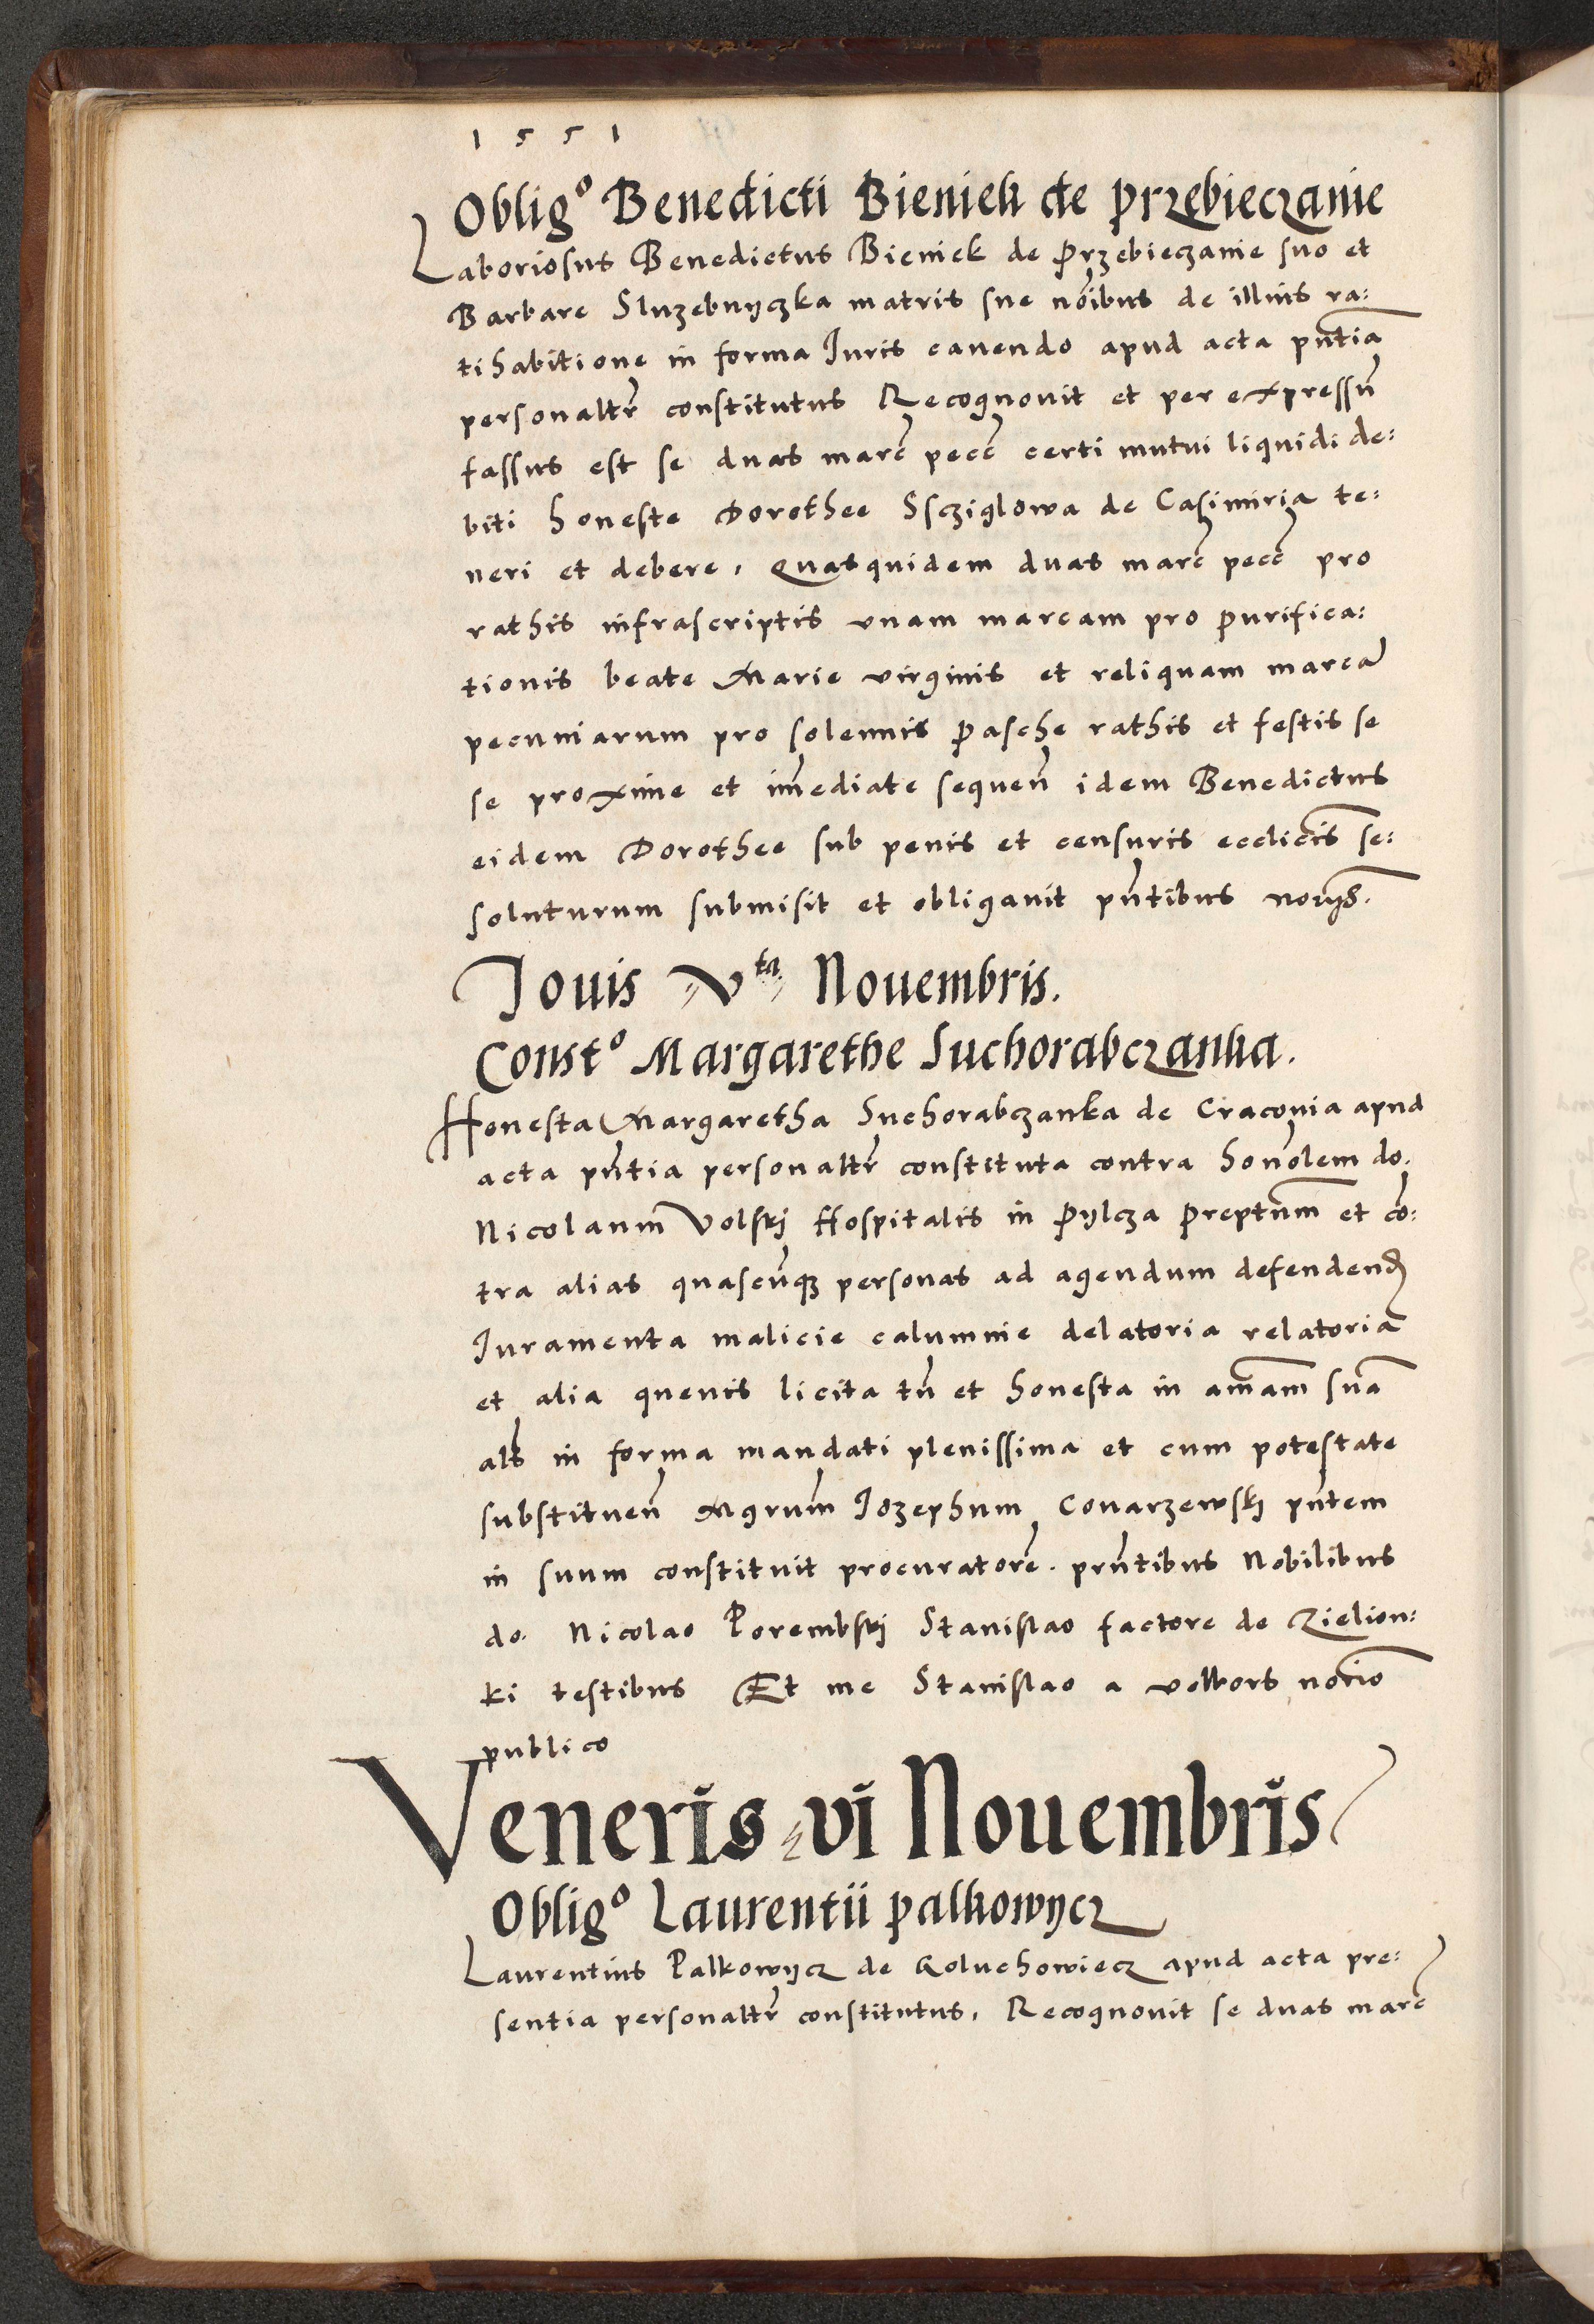 1551
Oblig⁰ Benedicti Bieniek de przebieczanie
Laboriosus Benedictus Bieniek de Przebieczanie suo et
Barbare Sluzebnyczka matris sue nōibus de illius ra:
tihabitione in forma Iuris cauendo apud acta pn̄tia
personaltr̄ constitutus Recognouit et per expressū
fassus est se duas marc̄ pecc̄ certi mutui liquidi de:
biti honeste Dorothee Sscziglowa de Casimiria te:
neri et debere, Quasquidem duas marc̄ pecc̄ pro
rathis infrascriptis vnam marcam pro purifica:
tionis beate Marie virginis et reliquam marcā
pecuniarum pro solennis Pasche rathis et festis se
se proxime et im̄ediate sequen̄ idem Benedictus
eidem Dorothee sub penis et censuris eccl̄icis se:
soluturum submisit et obligauit pn̄tibus
Iouis Vta Nouembris.
Const⁰ Margarethe Suchorabczanka.
Honesta Margaretha Suchorabczanka de Craconia apud
acta pn̄tia personaltr̄ constituta contra honōlem do.
Nicolaum Volskj Hospitalis in Pylcza Preptum̄ et cō:
tra alias quascūq3 personas ad agendum defenden̄
Iuramenta malicie calumnie delatoria relatoria
et alia queuis licita tn̄ et honesta in am̄am suā
als in forma mandati plenissima et cum potestate
substituen̄ Mgrum̄ Iozephum Conarzewskj pn̄tem
in suum constituit procuratorē. prn̄tibus Nobilibus
do. Nicolao Porembskj Stanislao factore de Zielion:
ki testibus Et me Stanislao a volbors nōrio
publico
Veneris vi Nouembris
Oblig⁰ Laurentii palkowycz
Laurentius Palkowycz de Goluchowiecz apud acta pre:
sentia personaltr̄ constitutus, Recognouit se duas marc̄